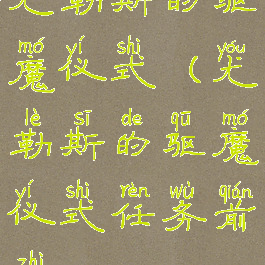 尤勒斯的驱
mó yí shì yóu
魔仪式(尤
lè sī de qū mó
勒斯的驱魔
yí shì rèn wù qián
仪式任务前
zhì